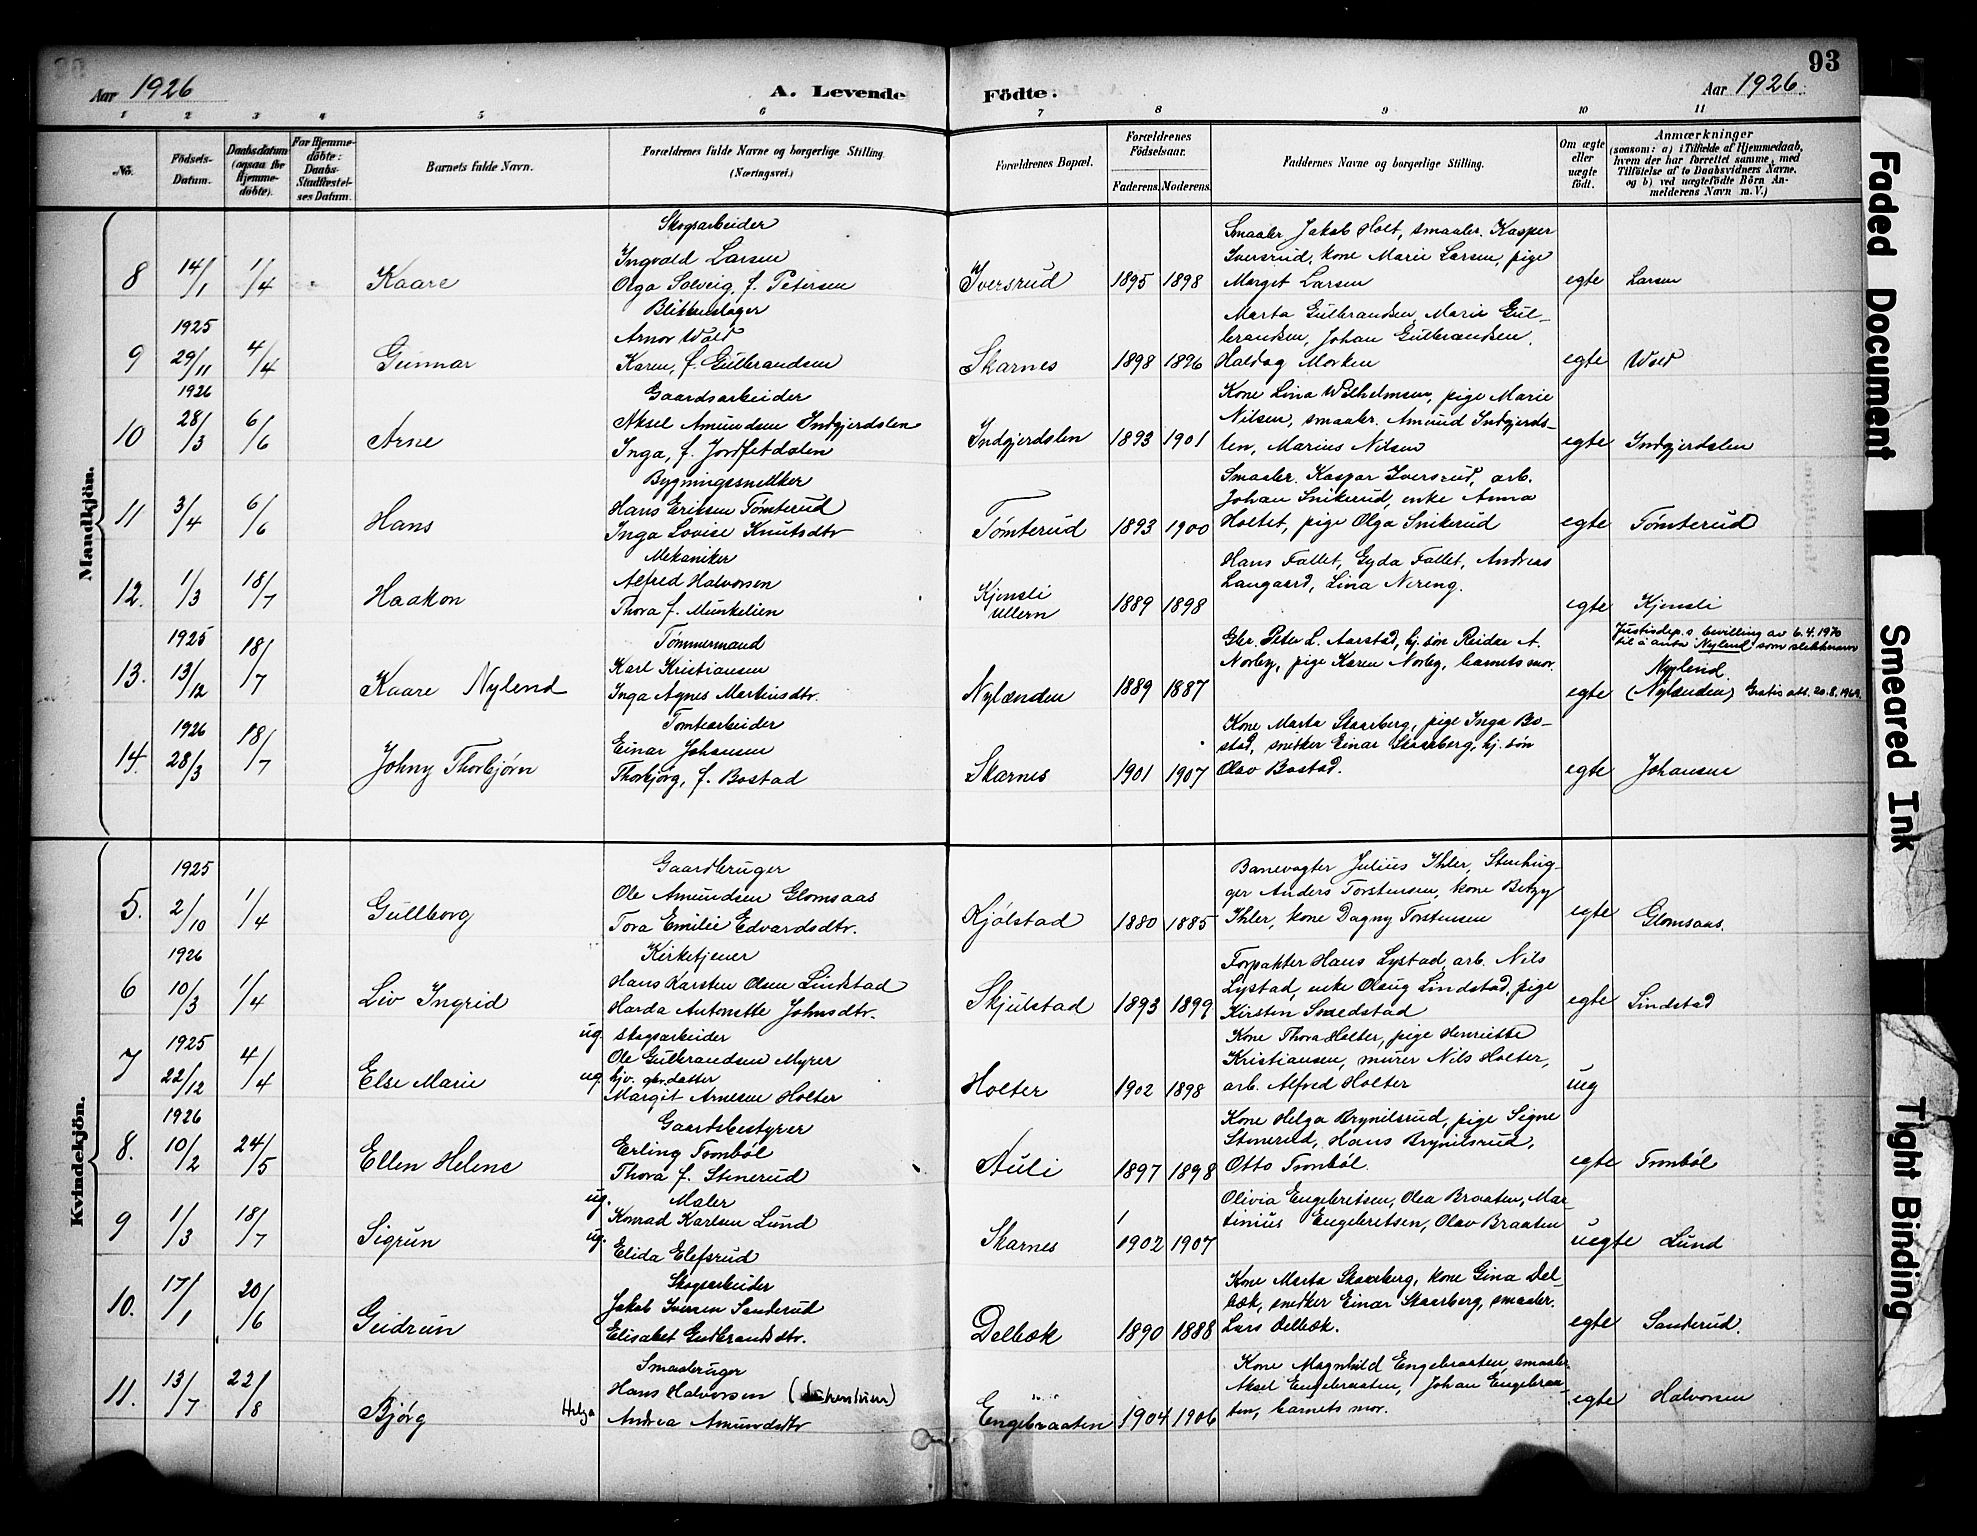 93
Aar 1926 A. Levende Födte. Aar 1926.
1 2 3 4 5 6 7 8 9 10 11
No. Födsels-Datum. Daabsdatum (ogsaa for Hjemme-döbte). For Hjemme-döbte: Daabs-Stadfæstel-ses Datum. Barnets fulde Navn. Forældrenes fulde Navne og borgerlige Stilling (Næringsvei.) Forældrenes Bopæl. Forældrenes Födselsaar. Faderens. Moderens. Faddernes Navne og borgerlige Stilling. Om ægte eller uægte födt. Anmærkninger (saasom: a) i Tilfælde af Hjemmedaab, hvem der har forrettet samme, med Tilföielse af to Daabsvidners Navne, og b) ved uægtefödte Börn An-melderens Navn m. V.)
Mandkjön.
Skogsarbeider
Ingvald Larsen
8 14/1 1/4 Kaare Olga Solveig, f. Petersen Iversrud 1895 1898 egte Larsen
Smaabr. Jakob Holt, smaabr. Kasper
Iversrud, kone Marie Larsen, pige
Marget Larsen
Blikkenslager
1925 Arnor Wold
9 29/11 4/4 Gunnar Karen, f. Gulbrandsen Skarnes 1898 1896 egte Wold
Marta Gulbrandsen, Marie Gul-
brandsen, Johan Gulbrandsen,
Haldag Morken
1926 Gaardsarbeider
Aksel Amundsen Indgjerdslen
10 28/3 6/6 Arne Inga, f. Jordfetdalen Indgjerdslen 1893 1901 egte Indgjerdslen
Kone Lina Wilhelmsen, pige Marie
Nilsen, smaabr. Amund Indgjerds-
len, Marius Nilsen
Bygningssnekker
Hans Eriksen Tømterud
11 3/4 6/6 Hans Inga Lovise Knutsdtr Tømterud 1893 1900 egte Tømterud
Smaabr. Kaspar Iversrud, arb.
Johan Snikerud, enke Anna
Holtet, pige Olga Snikerud
Mekaniker
Alfred Halvorsen
12. 1/3 18/7 Haakon Thora f. Munkelien Kjensli Ullern 1889 1898 egte Kjensli
Hans Fallet, Gyda Fallet, Andreas
Langaard, Lina Nereng.
1925 Tømmermand
Karl Kristiansen
13. 13/12 18/7 Kaare Nylend Inga Agnes Martinsdtr. Nylænden 1889 1887 egte
Gbr. Peter L. Aarstad, hj. søn Reidar A.
Norby, pige Karen Norby, barnets mor.
Justisdep.s. bevilling av 6.4.1970
til å anta Nylend som slektsnavn
Nylend.
(Nylænden) Gratis att. 20.8.1969.
1926 Tomtearbeider
Einar Johansen
14. 28/3 18/7 Johny Thorbjørn Thorbjørg, f. Bostad Skarnes 1901 1907 egte Johansen
Kone Marta Skaarberg, pige Inga Bo-
stad, snekker Einar Skaarberg, hj. søn
Olav Bostad.
Kvindekjön.
1925 Gaardbruger
Ole Amundsen Glomsaas
5. 2/10 1/4 Gullborg Tora Emilie Edvardsdtr. Kjölstad 1880 1885 egte Glomsaas.
Banevogter Julius Ihler, Stenhug-
ger Anders Torstensen, kone Betzy
Ihler, kone Dagny Torstensen
1926 Kirketjener
Hans Karsten Olsen Lindstad
6 10/3 1/4 Liv Ingrid Harda Antonette Johnsdtr. Skjulstad 1893 1899 egte Lindstad
Forpakter Hans Lystad, arb. Nils
Lystad, enke Olaug Lindstad, pige
Kirsten Smedstad
1925 ug. skogsarbeider
Ole Gulbrandsen Myrer
7 22/12 4/4 Else Marie ug. hjv. gbr. datter Margit Arnesen Holter Holter 1902 1898 ueg
Kone Thora Holter, pige Henriette
Kristiansen, murer Nils Holter,
arb. Alfred Holter
1926 Gaardsbestyrer
Erling Trønbøl
8. 10/2 24/5 Ellen Helene Thora f. Stenerud Auli 1897 1898 egte Trønbøl
Kone Helga Brynilsrud, pige Signe
Stenerud, Hans Brynilsrud,
Otto Trønbøl.
ug. Maler
Konrad Karlsen Lund
9 1/3 18/7 Sigrun ug. Elida Elefsrud Skarnes 1902 1907 uegte Lund
Olivia Engebretsen, Olea Braaten, Mar-
tinius Engebretsen, Olav Braaten
Skogsarbeider
Jakob Iversen Sanderud
10. 17/1 20/6 Gudrun Elisabet Gudbrandsdtr. Delbæk 1890 1888 egte Sanderud.
Kone Marta Skaarberg, kone Gina Del-
bæk, snekker Einar Skaarberg, smaabr.
Lars Delbæk.
Smaabruger
Hans Halvorsen
11. 13/7 22/8 Bjørg Helga Andrea Amundsdtr Engebraaten 1904 1906 egte Halvorsen
Kone Magnhild Engebraaten, smaabr
Aksel Engebraaten, Johan Engebraa-
ten, barnets mor.
Faded Document
Smeared Ink
Tight Binding